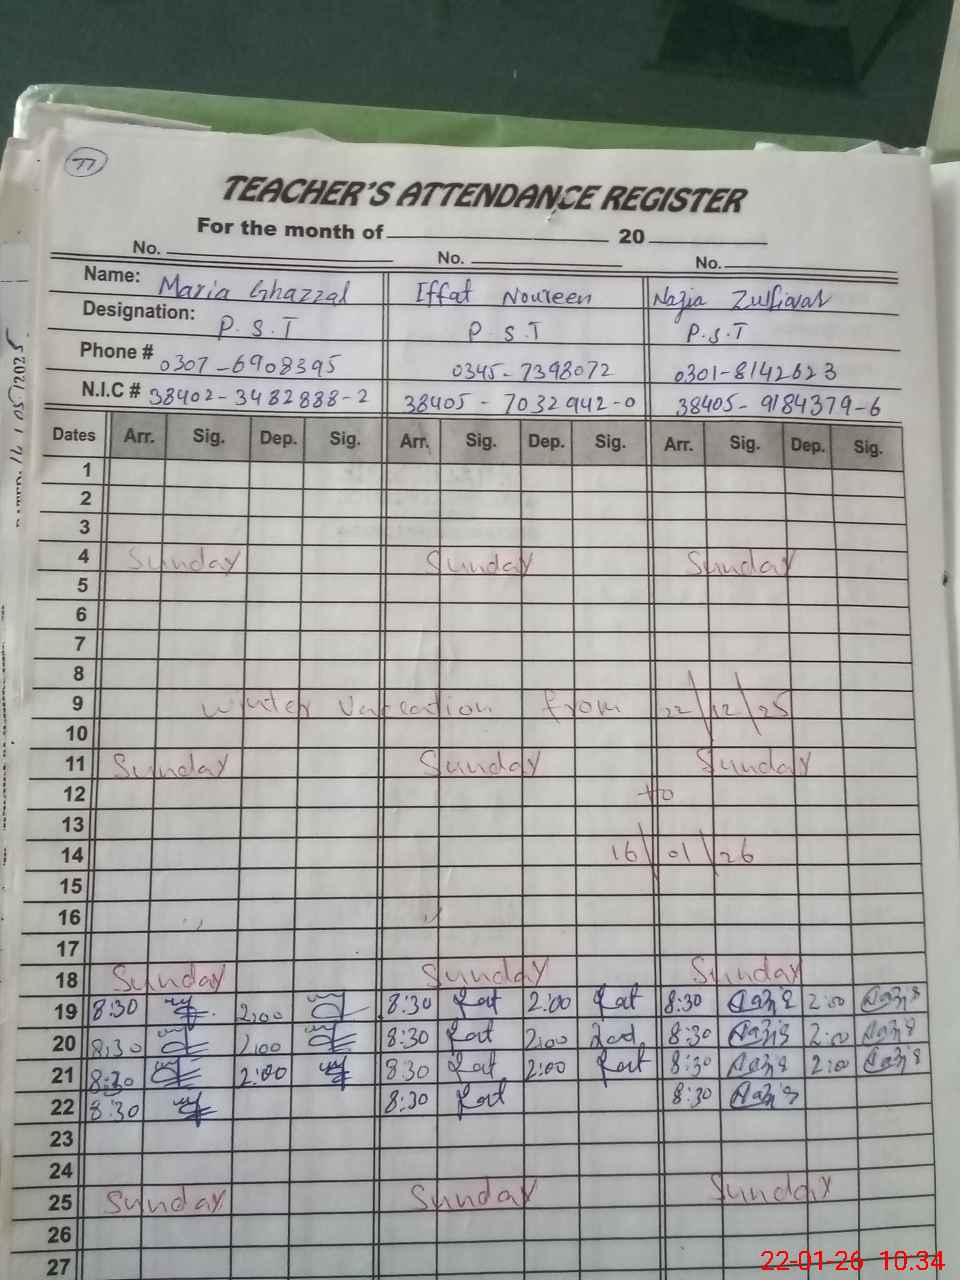 77
TEACHER'S ATTENDANCE REGISTER
For the month of 20
No. No. No.
Name: Maria Ghazzal Iffat Noureen Nazia Zulfiqar
Designation: P.S.T P.S.T P.S.T
Phone # 0307-6908395 0345-7398072 0301-8142623
N.I.C # 38402-3482888-2 38405-7032942-0 38405-9184379-6
Dates Arr. Sig. Dep. Sig. Arr. Sig. Dep. Sig. Arr. Sig. Dep. Sig.
1
2
3
4 Sunday Sunday Sunday
5
6
7
8
9 Winter Vaccation from 22/12/25
10
11 Sunday Sunday Sunday
12 to
13
14 16/01/26
15
16
17
18 Sunday Sunday Sunday
19 8:30 2:00 8:30 2:00 8:30 2:00
20 8:30 2:00 8:30 2:00 8:30 2:00
21 8:30 2:00 8:30 2:00 8:30 2:00
22 8:30 8:30 8:30
23
24
25 Sunday Sunday Sunday
26
27
22-01-26 10.34